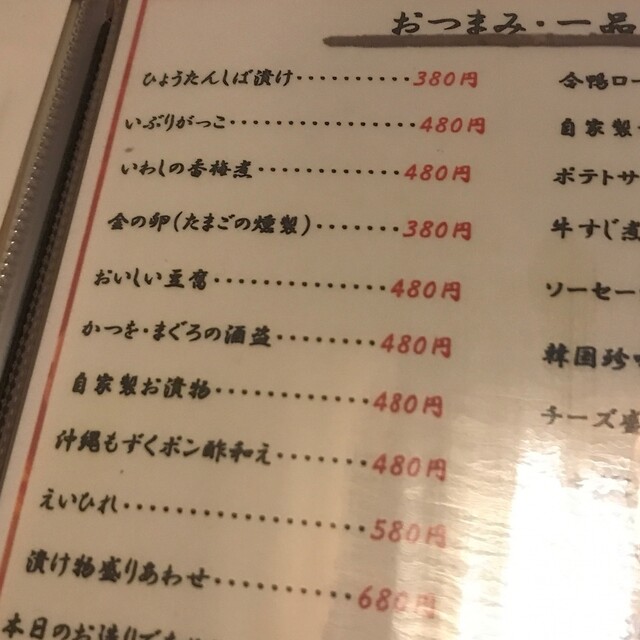 おつまみ・一品
ひょうたんしば漬け・・・・・・・・・・380円
いぶりがっこ・・・・・・・・・・・・・・・・480円
いわしの香梅煮・・・・・・・・・・・・・480円
金の卵(たまごの燻製)・・・・・・・・380円
おいしい豆腐・・・・・・・・・・・・・・・480円
かつを・まぐろの酒盗・・・・・・・・480円
自家製お漬物・・・・・・・・・・・・・480円
沖縄もずくポン酢和え・・・・・・・480円
えいひれ・・・・・・・・・・・・・・・・・580円
漬け物盛りあわせ・・・・・・・・・・680円
本日のお造り
合鴨ロー
自家製
ポテトサ
牛すじ煮
ソーセー
韓国珍味
チーズ盛